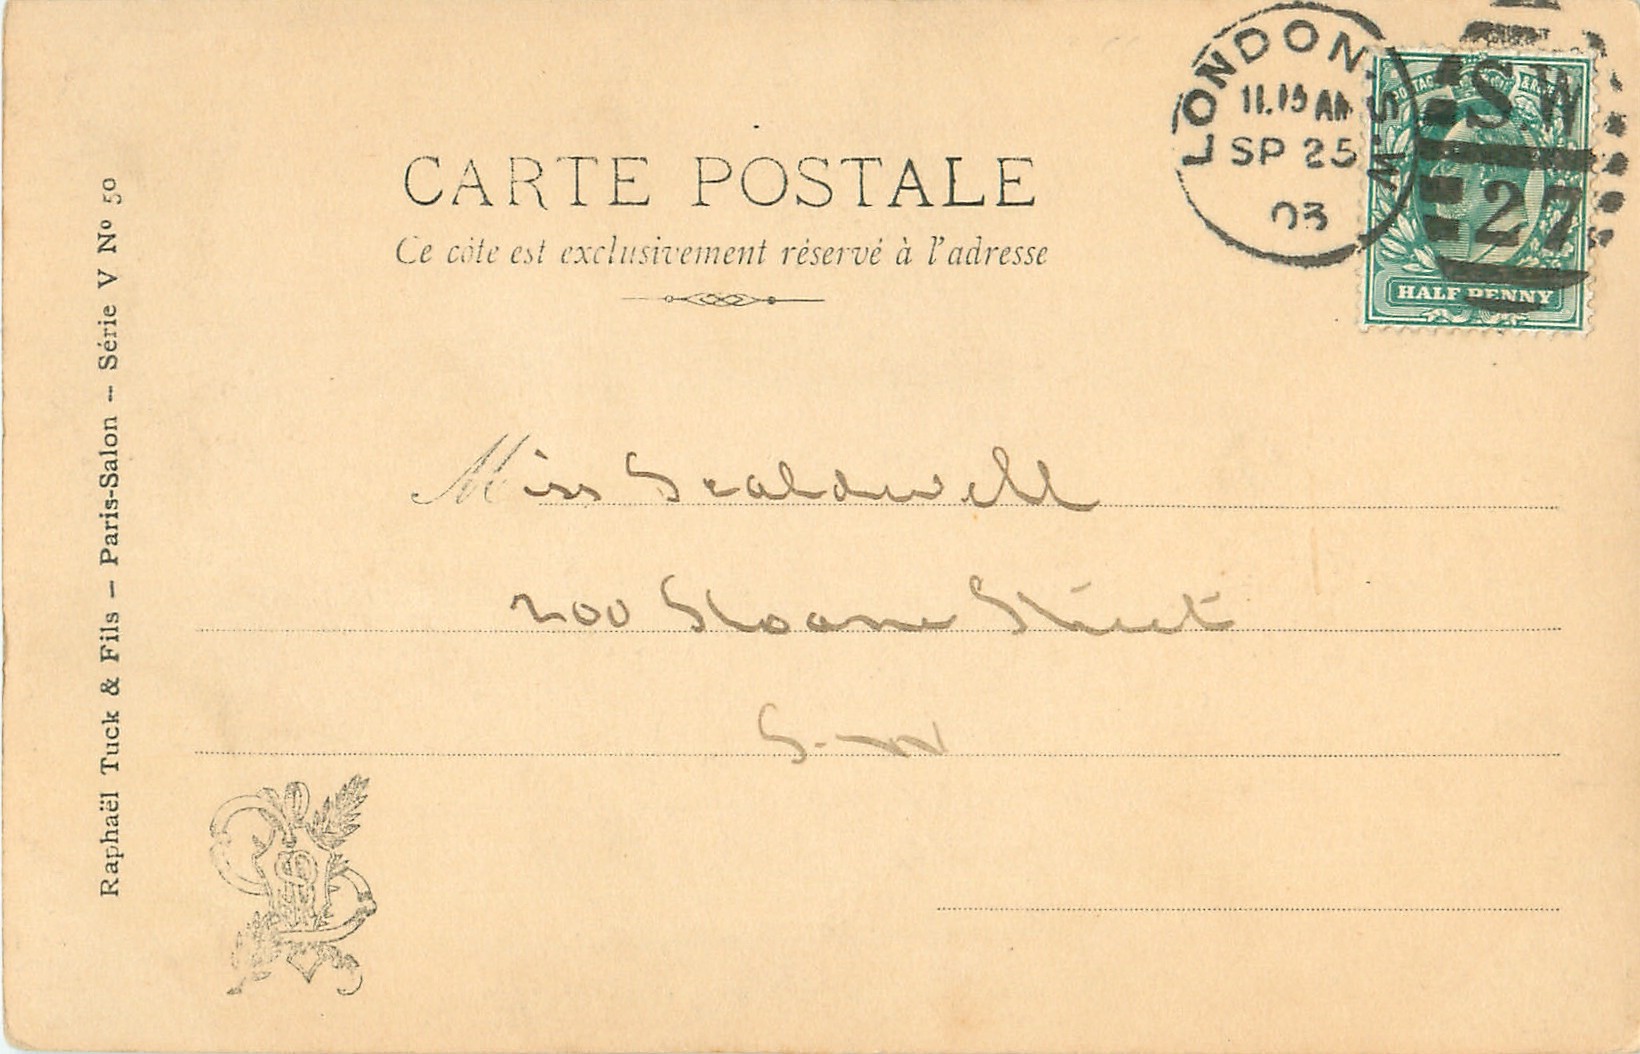 CARTE POSTALE
Ce côte est exclusivement réservé à l'adresse
LONDON. S.W
11.15 AM
SP 25
03
S.W
27
POSTAGE & REVENUE
HALF PENNY
Miss
200 Sloane Street
S.W
Raphaël Tuck & Fils – Paris-Salon -- Série V Nº 50